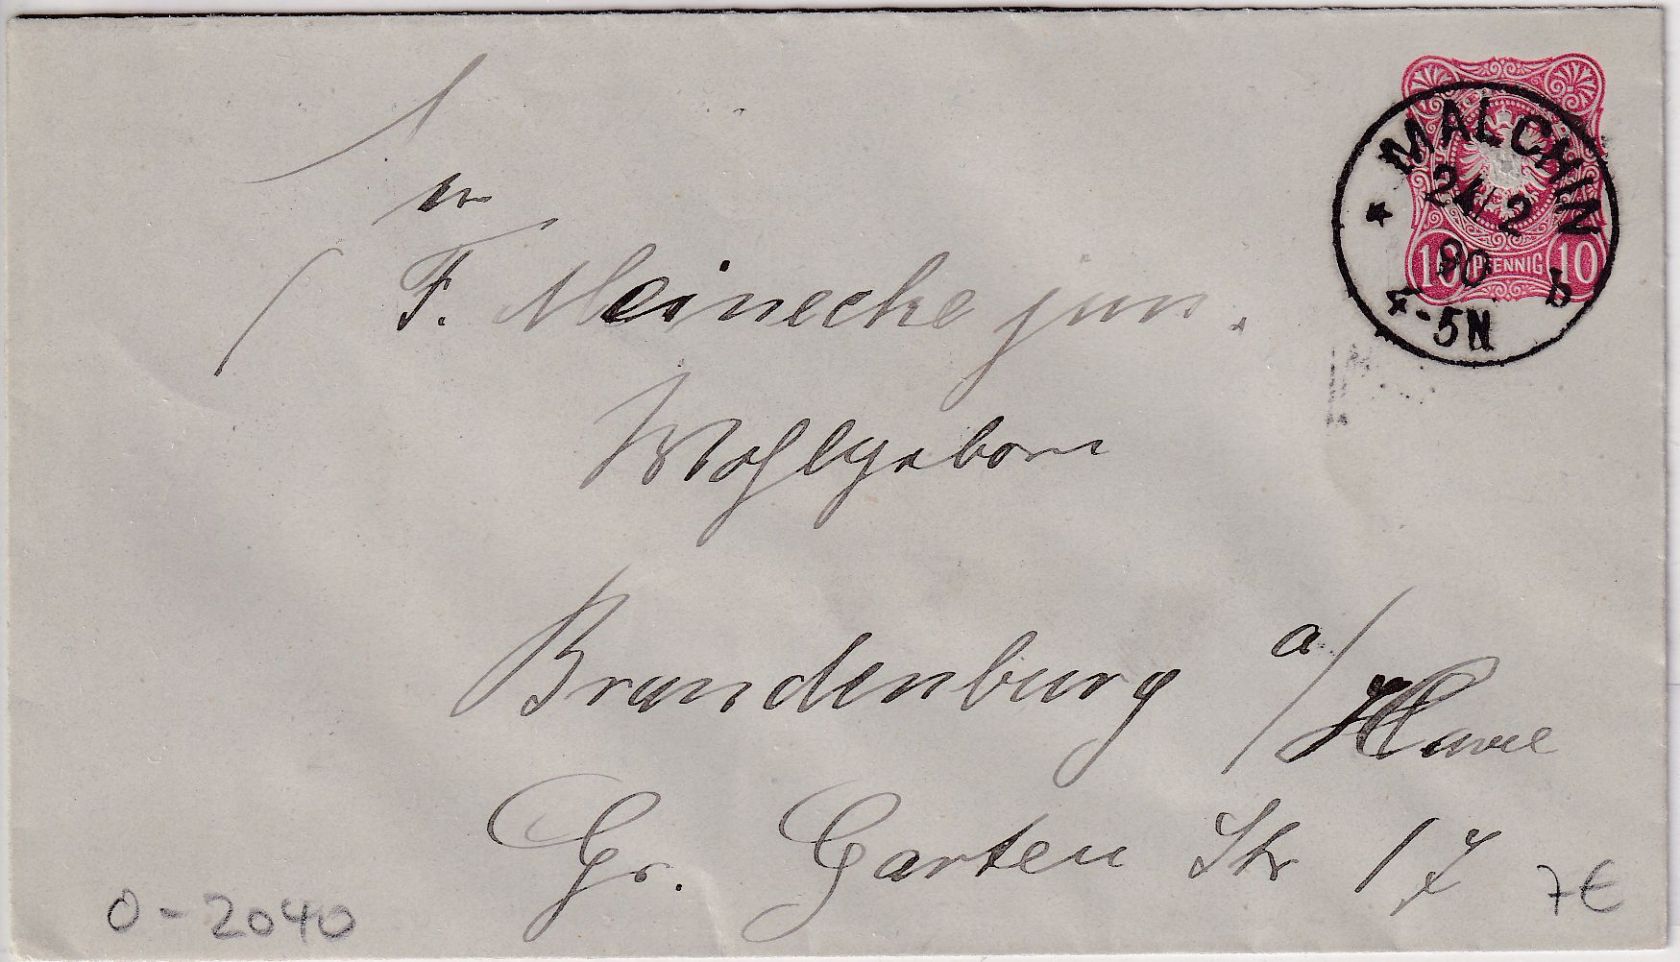 MALCHIN
24/2
90
4-5N b
10 PFENNIG 10
F. Meinecke jun.
Wohlgeborn
Brandenburg a/Havel
Gr. Garten Str 17
0-2040
7€